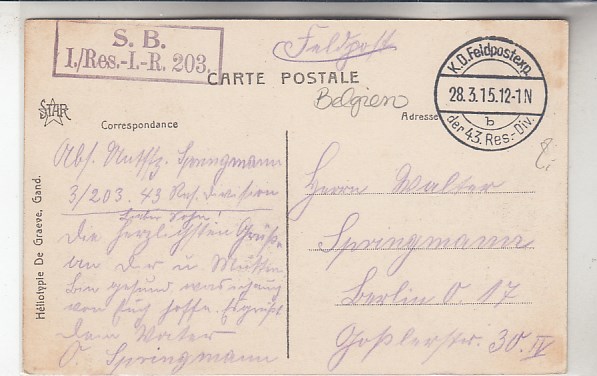 S. B.
I./Res.-I.-R. 203.
Feldpost
CARTE POSTALE
Belgien
K.D. Feldpostexp.
28.3.15.12-1N
b
der 43. Res.-Div.
STAR
Correspondance
Adresse
Héliotypie De Graeve, Gand.
Abs. Springmann
3/203. 43 Res. Division
Lieber Sohn!
Die herzlichsten Grüße
an D u Mutter
Bin gesund was ich auch
von Euch hoffe. Es grüßt
Dein Vater
O. Springmann
Herrn Walter
Springmann
Berlin O. 17
Goßlerstr. 30. IV